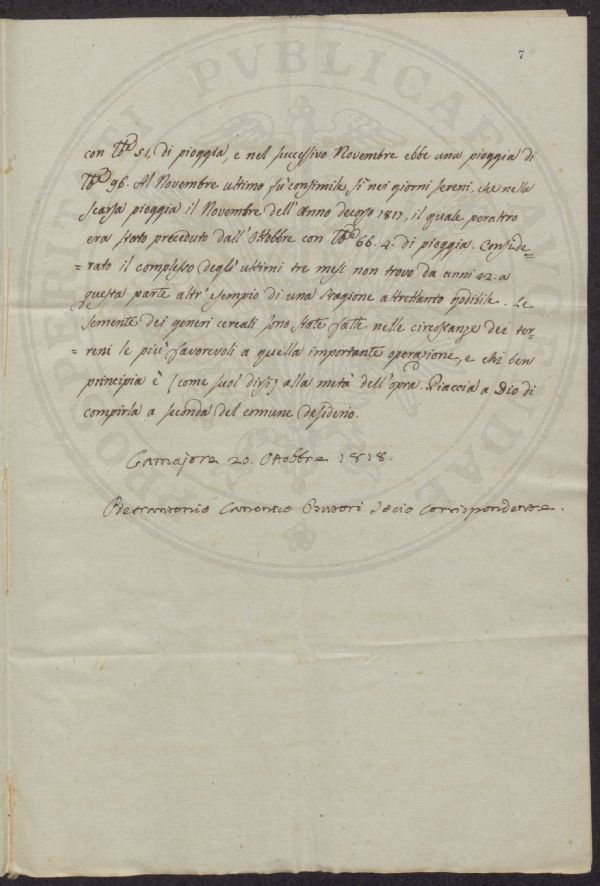 7
con lb̃ 51. di pioggia, e nel successivo Novembre ebbe una pioggia di
lb̃ 96. Al Novembre ultimo fù consimile, sì nei giorni sereni, che nella
scarsa pioggia il Novembre dell'Anno decorso 1817, il quale peraltro
era stato preceduto dall'Ottobre con lb̃ 66. 4. di pioggia. Conside-
=rato il complesso degl'ultimi tre mesi non trovo da anni 42. a
questa parte altr'esempio di una Stagione altrettanto godibile. Le
semente dei generi cereali sono state fatte nelle circostanze dei ter-
=reni le più favorevoli a quella importante operazione, e chi ben
principia è (come suol dirsi) alla metà dell'opra. Piaccia a Dio di
compirla a seconda del comune desiderio.
Camajore 20. Ottobre 1818.
Pietrantonio Canonico Butori Socio Corrispondente.